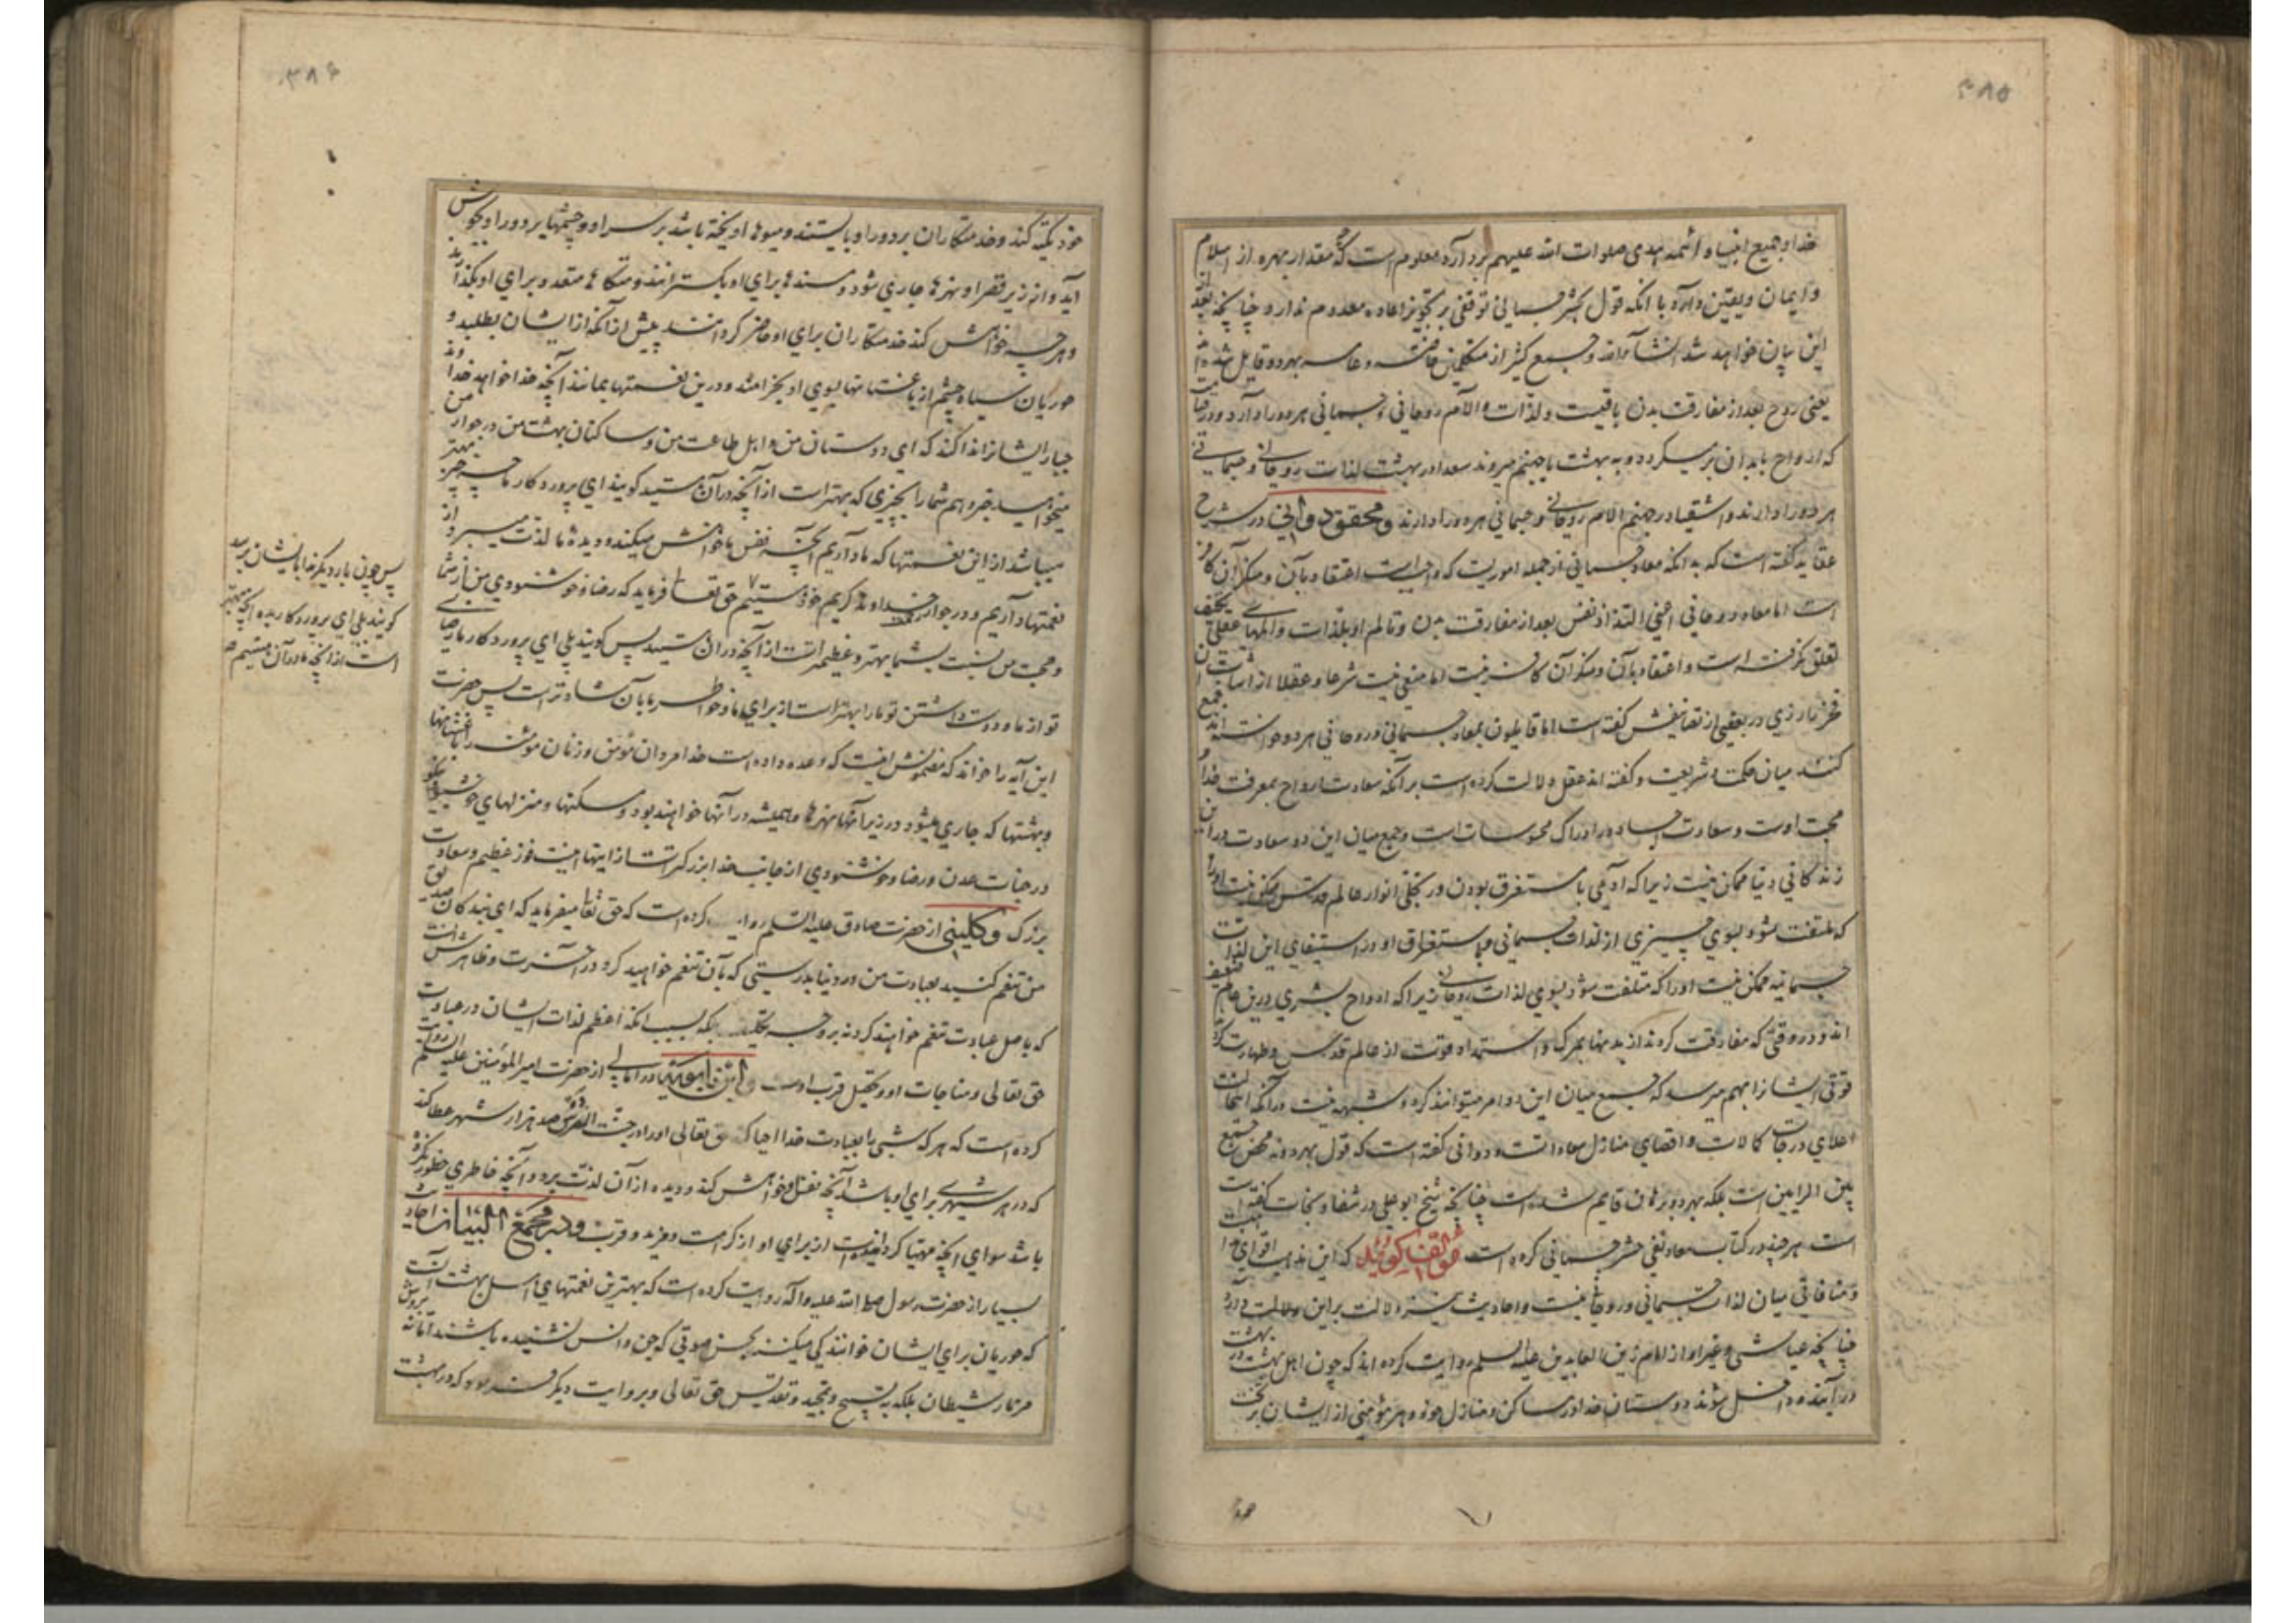 ۳۸۵
خدا و جمیع انبیا و ائمه هدی صلوات الله علیهم رد آرد معلوم است که چه مقدار بهره از اسلام
و ایمان و یقین دارد با آنکه قول بحشر جسمانی توقفی بر تجویز اعاده معدوم ندارد چنانچه بعد
ازین بیان خواهد شد انشاء الله و جمع کثیر از متکلمین خاصه و عامه بهر دو قایل شده‌اند
یعنی روح بعد از مفارقت بدن باقیست و لذات و آلام روحانی و جسمانی هر دو را دارد و در قیامت
که ارواح بابدان برمیگردد و به بهشت یا جهنم میروند سعدا در بهشت لذات روحانی و جسمانی
هر دو را دارند و اشقیا در جهنم آلام روحانی و جسمانی هر دو را دارند و محقق دوانی در شرح
عقاید گفته است که بدانکه معاد جسمانی از جمله اموریست که واجب است اعتقاد بآن و منکر آن کافر
است اما معاد روحانی اعنی التذاذ نفس بعد از مفارقت بدن و تالم او بلذات و المهای عقلی تکلیف
تعلق نگرفته است و اعتقاد بآن و منکر آن کافر نیست اما منعی نیست شرعا و عقلا از اثبات آن
فخر رازی در بعضی از تصانیفش گفته است اما قایلون بمعاد جسمانی و روحانی هر دو خواسته‌اند جمع
کنند میان حکمت و شریعت و گفته‌اند عقل دلالت کرده است بر آنکه سعادت ارواح بمعرفت خدا و
محبت اوست و سعادت اجساد در ادراک محسوسات است و جمع میان این دو سعادت در این
زندگانی دنیا ممکن نیست زیرا که آدمی با مستغرق بودن در تجلی انوار عالم قدس ممکن نیست او را
که ملتفت شود بسوی چیزی از لذات جسمانی و با استغراق او در استیفای این لذات
جسمانیه ممکن نیست او را که ملتفت شود بسوی لذات روحانی زیرا که ارواح بشری درین عالم ضعیف
اند و در وقتی که مفارقت کردند از بدنها بمرگ و استمداد قوت از عالم قدس و طهارت کردند
قوتی ایشانرا بهم میرسد که جمع میان این دو امر میتوانند کرد و شبهه نیست در آنکه این حالت
اعلای درجات کمالات و اقصای منازل سعاداتست و دوانی گفته است که قول بهر دو نه محض جمع
بین الرایین است بلکه بهر دو برهان قایم شده است چنانچه شیخ ابو علی در شفا و نجات گفته است
است هر چند در کتاب معاد نفی حشر جسمانی کرده است مؤلف گوید که این مذهب اقوای
و منافاتی میان لذات جسمانی و روحانی نیست و احادیث نیز دلالت بر این دلالت دارد
چنانچه عیاشی و غیر او از امام زین العابدین علیه السلم روایت کرده‌اند که چون اهل بهشت در بهشت
در آیند و داخل شوند دوستان خدا در مساکن و منازل خود و هر مؤمنی از ایشان بر تخت
۳۸۶
خود تکیه کند و خدمتکاران بر دور او بایستند و میوها اویخته باشد بر سر او و چشمها بر دور او بجوش
آید و از زیر قصر او نهرها جاری شود و مسندها برای او بگسترانند و متکاها متعدد برای او بگذارند
و هر چه خواهش کند خدمتکاران برای او حاضر گردانند پیش از آنکه از ایشان بطلبد و
حوریان سیاه چشم از باغستانها بسوی او بخرامند و درین نعمتها بمانند آنچه خدا خواهد خداوند
جبار ایشانرا ندا کند که ای دوستان من و اهل طاعت من و ساکنان بهشت من در جوار من
میخواهید خبر دهم شما را بچیزی که بهتر است از آنچه در آن هستید گویند ای پروردگار ما چه چیز بهتر
میباشد از این نعمتها که ما داریم آنچه نفس ما خواهش میکند و دیده ما لذت میبرد از
نعمتها داریم و در جوار خداوند کریم خود هستیم حق تعالی فرماید که رضا و خوشنودی من از شما
و محبت من نسبت بشما بهتر و عظیمتر است از آنچه در آن هستید پس گویند بلی ای پروردگار ما رضای
تو از ما و دوست داشتن تو ما را بهتر است از برای ما و خواطر ما بآن شادتر است پس حضرت
این آیه را خواند که مضمونش اینست که وعده داده است خدا مردان مؤمن و زنان مؤمنه را باغستانها
و بهشتها که جاری میشود در زیر آنها نهرها و همیشه در آنها خواهند بود و مسکنها و منزلهای خوشبو نیکو
در جنات عدن و رضا و خوشنودی از جانب خدا بزرگتر است از اینها اینست فوز عظیم و سعادت
بزرگ و کلینی از حضرت صادق علیه السلم روایت کرده است که حق تعالی میفرماید که ای بندگان صدیق
من تنعم کنید بعبادت من در دنیا بدرستی که بآن تنعم خواهید کرد در آخرت و ظاهرش آنست
که باصل عبادت تنعم خواهند کرد نه بر وجه تکلیف بلکه بسبب آنکه اعظم لذات ایشان در عبادت
حق تعالی و مناجات او و تحصیل قرب اوست و ابن بابویه در امالی از حضرت امیر المؤمنین علیه السلم روایت
کرده است که هر که شبی را بعبادت خدا احیا کند حق تعالی او را در جنت الفردوس صد هزار شهر عطا کند
که در هر شهری برای او باشد آنچه نفس او خواهش کند و دیده از آن لذت برد و آنچه خاطری خطور نکرده
باشد سوای آنچه مهیا گردانیده است از برای او از کرامت و مزید و قرب و در مجمع البیان احادیث
بسیار از حضرت رسول صلی الله علیه و آله روایت کرده است که بهترین نعمتهای اهل بهشت آنست
که حوریان برای ایشان خوانندگی میکنند بحسن صوتی که جن و انس نشنیده باشند اما نه بروش
مزمار شیطان بلکه به تسبیح و تمجید و تقدیس حق تعالی و بروایت دیگر فرمود که در بهشت
پس چون بار دیگر ندا بایشان برسد
گویند بلی ای پروردگار بده آنچه بهتر
است از آنچه ما در آن هستیم